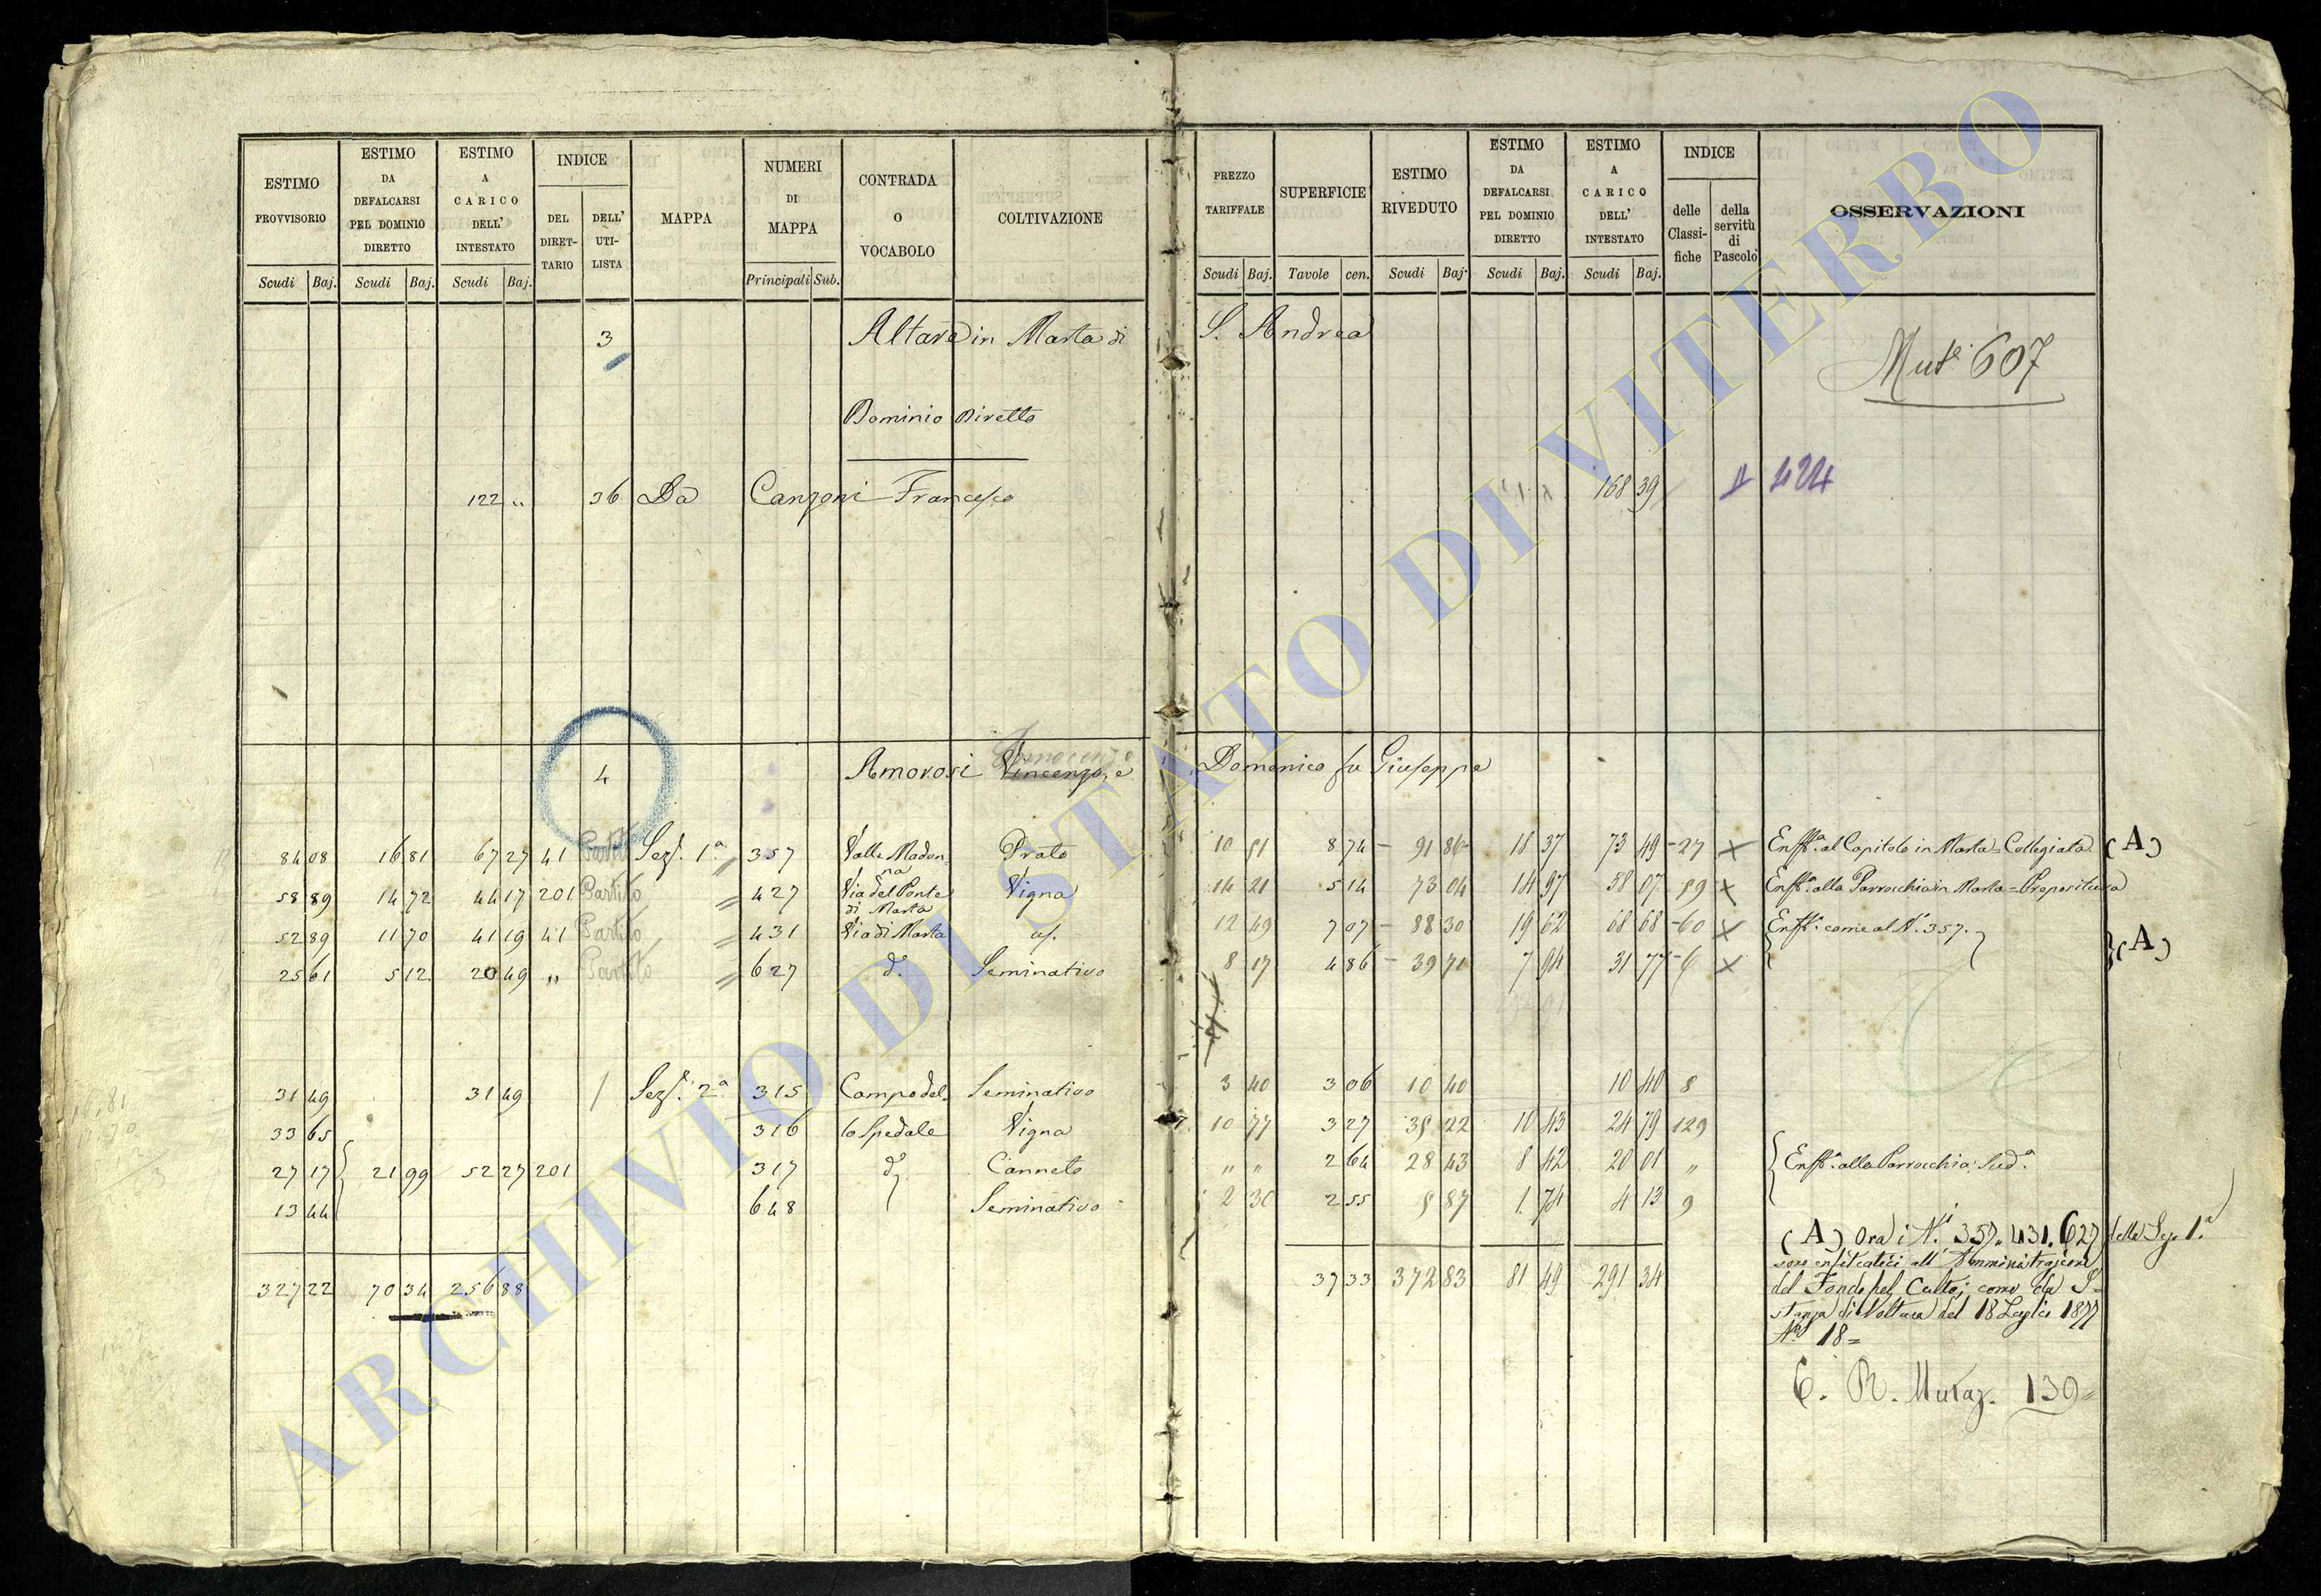 ESTIMO PROVVISORIO
ESTIMO DA DEFALCARSI PEL DOMINIO DIRETTO
ESTIMO A CARICO DELL' INTESTATO
INDICE
DEL DIRET-TARIO
DELL' UTI-LISTA
MAPPA
NUMERI DI MAPPA
CONTRADA O VOCABOLO
COLTIVAZIONE
PREZZO TARIFFALE
SUPERFICIE
ESTIMO RIVEDUTO
ESTIMO DA DEFALCARSI PEL DOMINIO DIRETTO
ESTIMO A CARICO DELL' INTESTATO
INDICE
delle Classi-fiche
della servitù di Pascolo
OSSERVAZIONI
Scudi Baj. Scudi Baj. Scudi Baj. Principali Sub. Scudi Baj. Tavole cen. Scudi Baj. Scudi Baj. Scudi Baj.
3 Altare in Marta di S. Andrea
Mutᵉ 607
Dominio Diretto
122 „ 36 Da Canzoni Francesco 168 39 424
4 Amorosi Vincenzo, e Domenico fu Giuseppe
Innocenzo
84 08 16 81 67 27 41 Partito Sezᵉ. 1ª 357 Valle Madonna Prato 10 51 8 74 91 86 18 37 73 49 27 × Enfᵃ. al Capitolo in Marta = Collegiata. (A)
58 89 14 72 44 17 201 Partito 427 Via del Ponte di Marta Vigna 14 21 5 14 73 04 14 97 58 07 59 × Enfᵃ. alla Parrocchia in Marta = Prepositura
52 89 11 70 41 19 41 Partito 431 Via di Marta 12 49 7 07 88 30 19 62 68 68 60 × Enfᵃ. come al N°. 357.
25 61 5 12 20 49 „ Partito 627 d°. Seminativo 8 17 4 86 39 71 7 94 31 77 × (A)
31 49 31 49 Sezᵉ. 2ª 315 Campo del- Seminativo 3 40 3 06 10 40 10 40 8
33 65 316 lo Spedale Vigna 10 77 3 27 35 22 10 43 24 79 129
27 17 21 99 52 27 201 317 d° Canneto „ „ 2 64 28 43 8 42 20 01 „ Enfᵃ. alla Parrocchia Sudᵃ.
13 44 648 Seminativo 2 30 2 55 5 87 1 74 4 13 9
327 22 70 34 256 88 37 33 372 83 81 49 291 34
(A) Ora i Nⁱ. 357. 431. 627 della Sez. 1ª
sono enfiteutici all' Amministrazione
del Fondo pel Culto, come da I-
stanza di Voltura del 18 Luglio 1877
N° 18 =
C. R. Mutaz. 139 =
ARCHIVIO DI STATO DI VITERBO